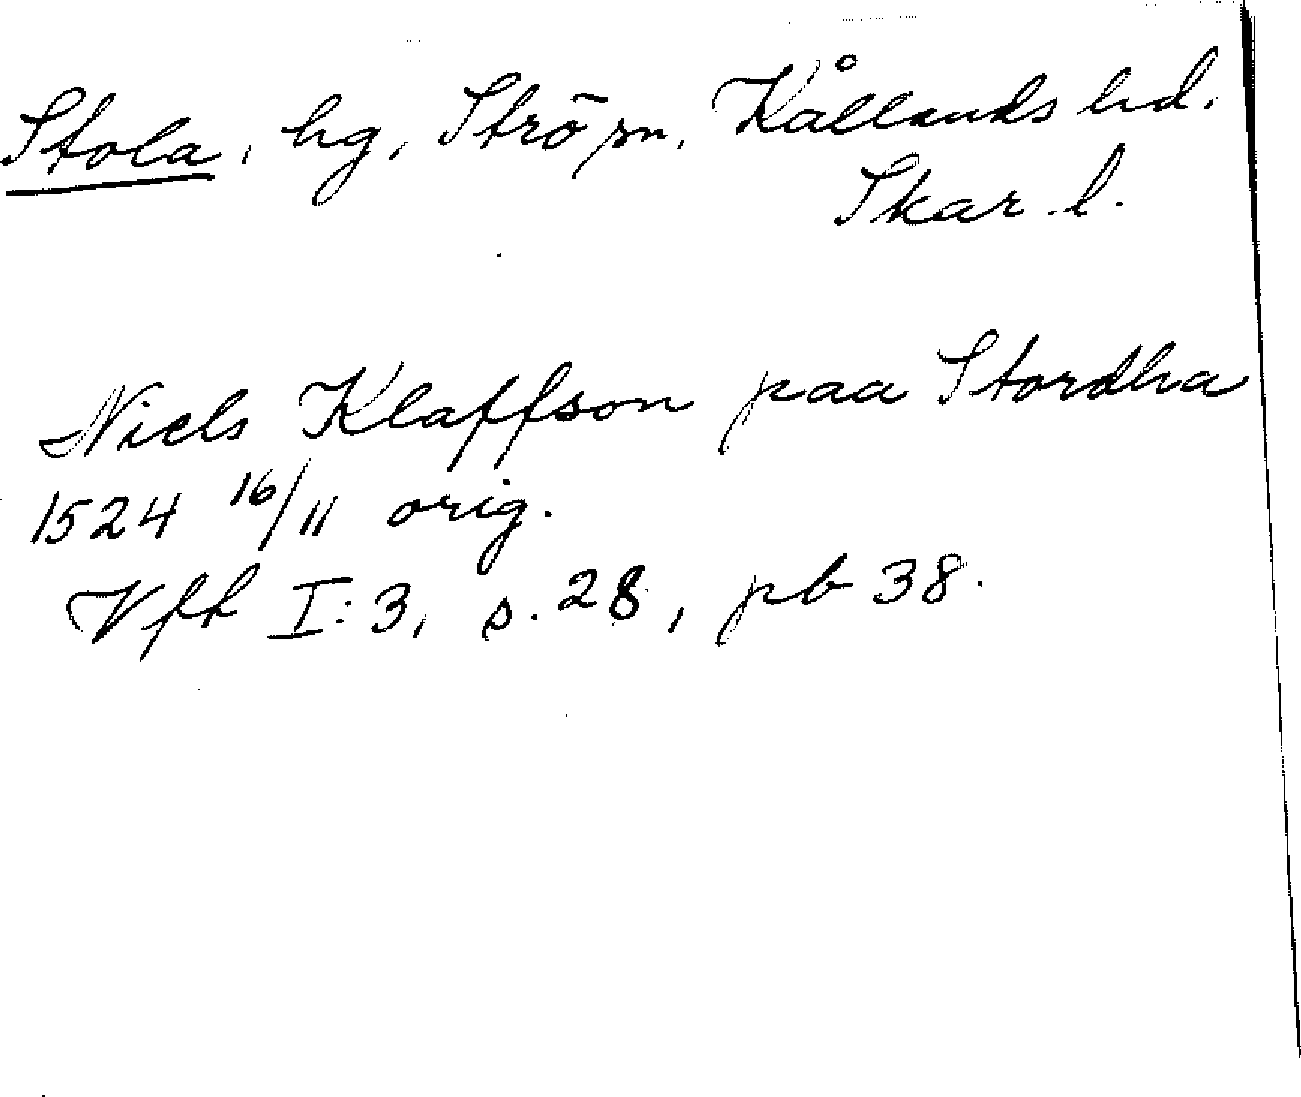 Stola, hg, Strö sn, Kållands hd.
Skar. l.
Niels Klaffson paa Stordha
1524 16/11 orig.
Vfh I:3, s. 28, pb 38.